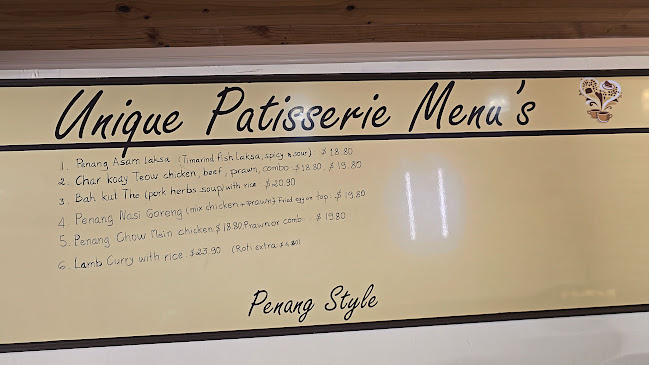 Unique Patisserie Menu's
1. Penang Asam laksa (Timarind fish Laksa, spicy & sour) $18.80
2. Char koay Teow chicken, beef, prawn, combo $18.80, $19.80
3. Bah kut The (pork herbs soup) with rice $20.90
4. Penang Nasi Goreng (mix chicken + prawn) Fried egg on top $19.80
5. Penang Chow Mein chicken $18.80, Prawn or comb: $19.80
6. Lamb Curry with rice: $23.90 (Roti extra:
Penang Style